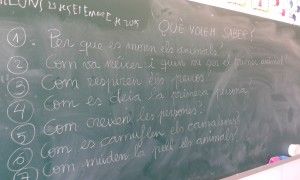 DILLUNS, 21 SETEMBRE
QUÈ VOLEM SABER?
1. Per què es moren els animals?
2. Com va néixer i quin va ser el primer animal
3. Com respiren els peixos?
4. Com es deia la primera persona
5. Com creixen les persones?
6. Com es camuflen els camaleons?
7. Com muden la pell els animals?